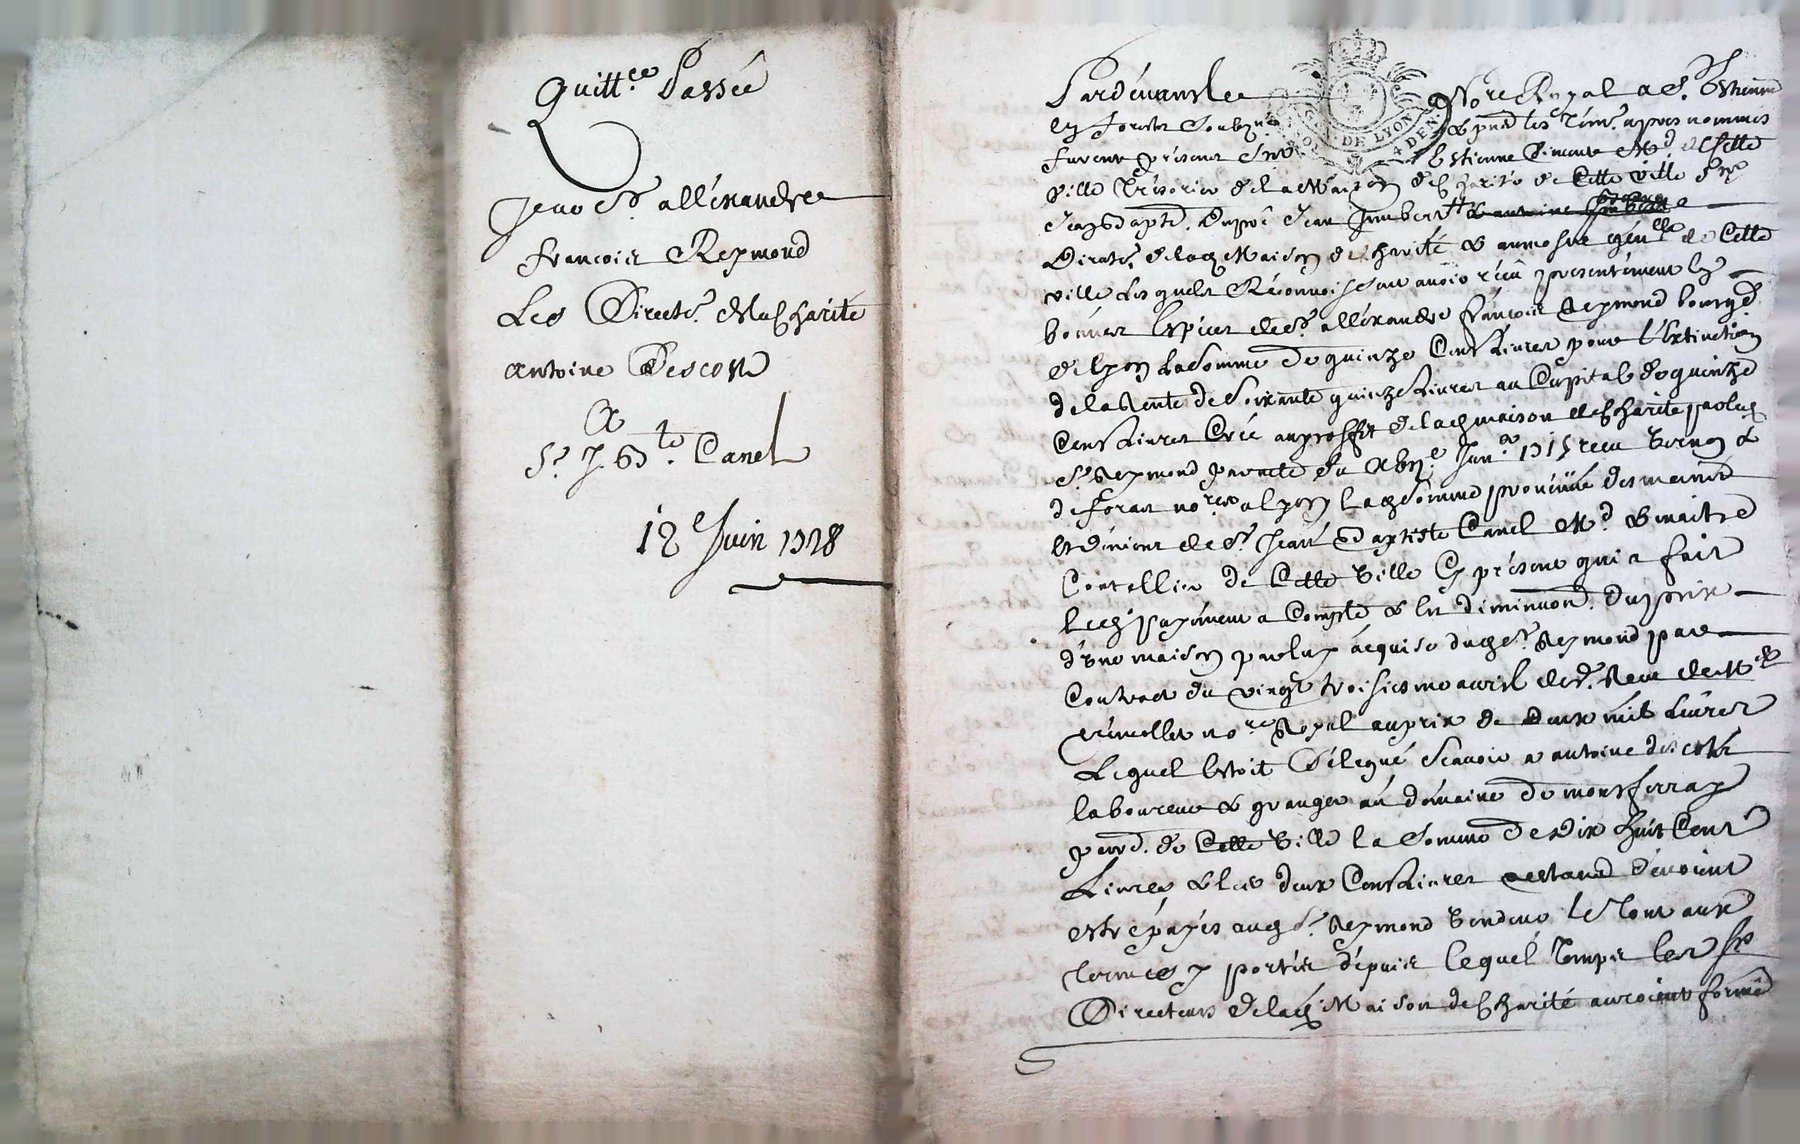 Quitt.ce Passée
Jeno Sr. allexandre
françois Reymond
Les Directrs. de la Charité
Antoine Descoste
A
Sr. J. Bte. Canel
12e Juin 1728
Pardevant le Nore Royal a St. Estienne
en forest soubzne & pnt les tém. apres nommés
furent présent Sr. Estienne Md de cette
ville Trésorier de la Maison de Charité de Cette ville Sr.
Jean Bapte. Dupré Jean Jmbert
Directrs. de lad. Maison de Charité & aumosne génlle de Cette
ville Lesquels Reconnoissent avoir réçu présentément en
bonnes Espèces de Sr. allexandre françois Reymond bourgs.
de Lyon La somme de quinze Cens Livres pour l'Extinction
de la Rente de soixante quinze Livres au Capital de quinze
Cens Livres Créé au proffit de lad. maison de Charité par led.
Sr. Reymond par acte du Janer. 1715 reçu &
noires a Lyon Lad. somme provenüe des mains &
déniers de Sr. Jean Baptiste Canel Md & maitre
Coutellier de Cette ville Cy présent qui a fait
led. payément a Compte & en diminuon. du prix
d'une maison par luy acquise dud. Sr. Reymond par
Contract du vingt troisiesme avril der. Reçu de Me
nore Royal au prix de deux mil Livres
Lequel Estoit Délégué sçavoir a antoine descoste
laboureur & granger au domaine de montferra
parr. de Cette ville la somme de dix huit Cent
Livres & les deux Cens Livres restant dévoient
estre payés aud. Sr. Reymond vendeur le tout aux
termes y portés dépuis lequel temps les Srs
Directeurs de lad. Maison de Charité auroient formé
GEN. DE LYON
4 DEN.